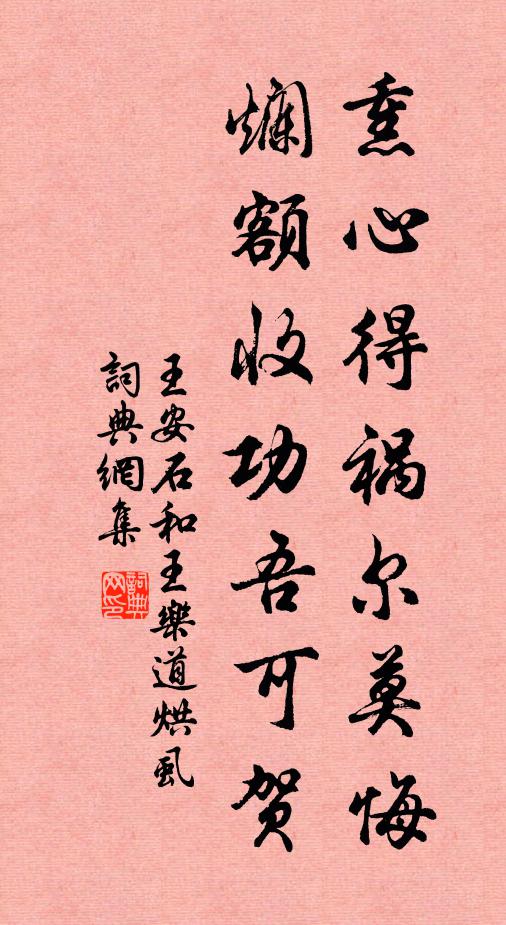 熏心得祸尔莫悔
爛额收功吾可贺
王安石和王樂道烘虱
詞典網集
詞典
网印